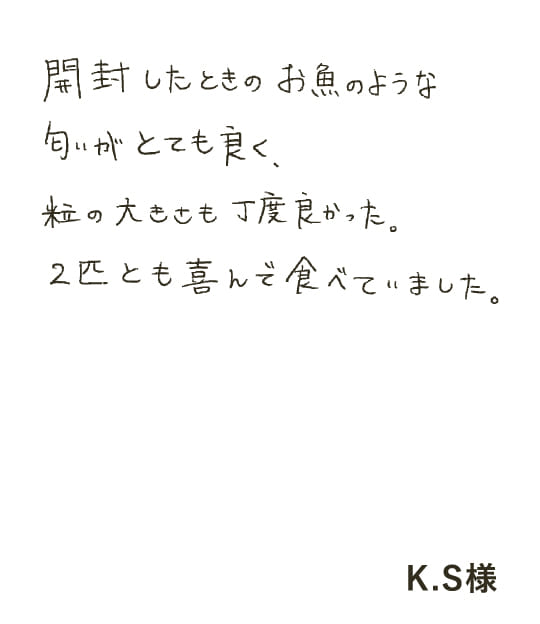 開封したときのお魚のような
匂いがとても良く、
粒の大きさも丁度良かった。
2匹とも喜んで食べていました。
K.S様